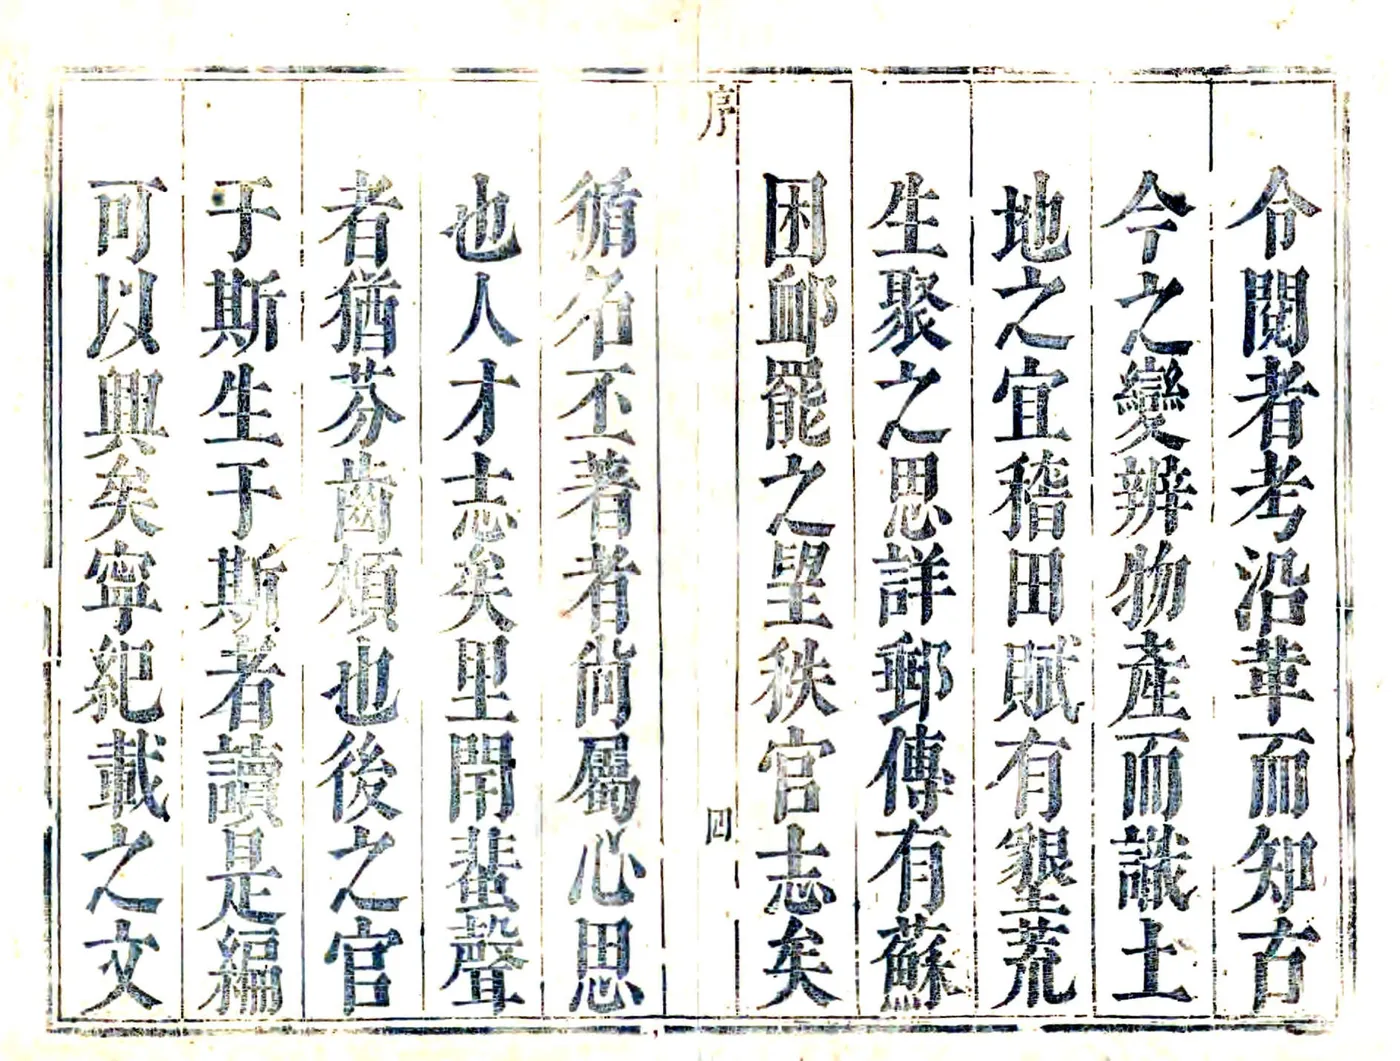 令閱者考沿革而知古
今之變辨物產而識土
地之宜稽田賦有墾荒
生聚之思詳郵傳有蘇
困卹罷之望秩官志矣
序
四
循名丕著者尚屬心思
也人才志矣里閈蜚聲
者猶芬齒頰也後之官
于斯生于斯者讀是編
可以興矣寧紀載之文